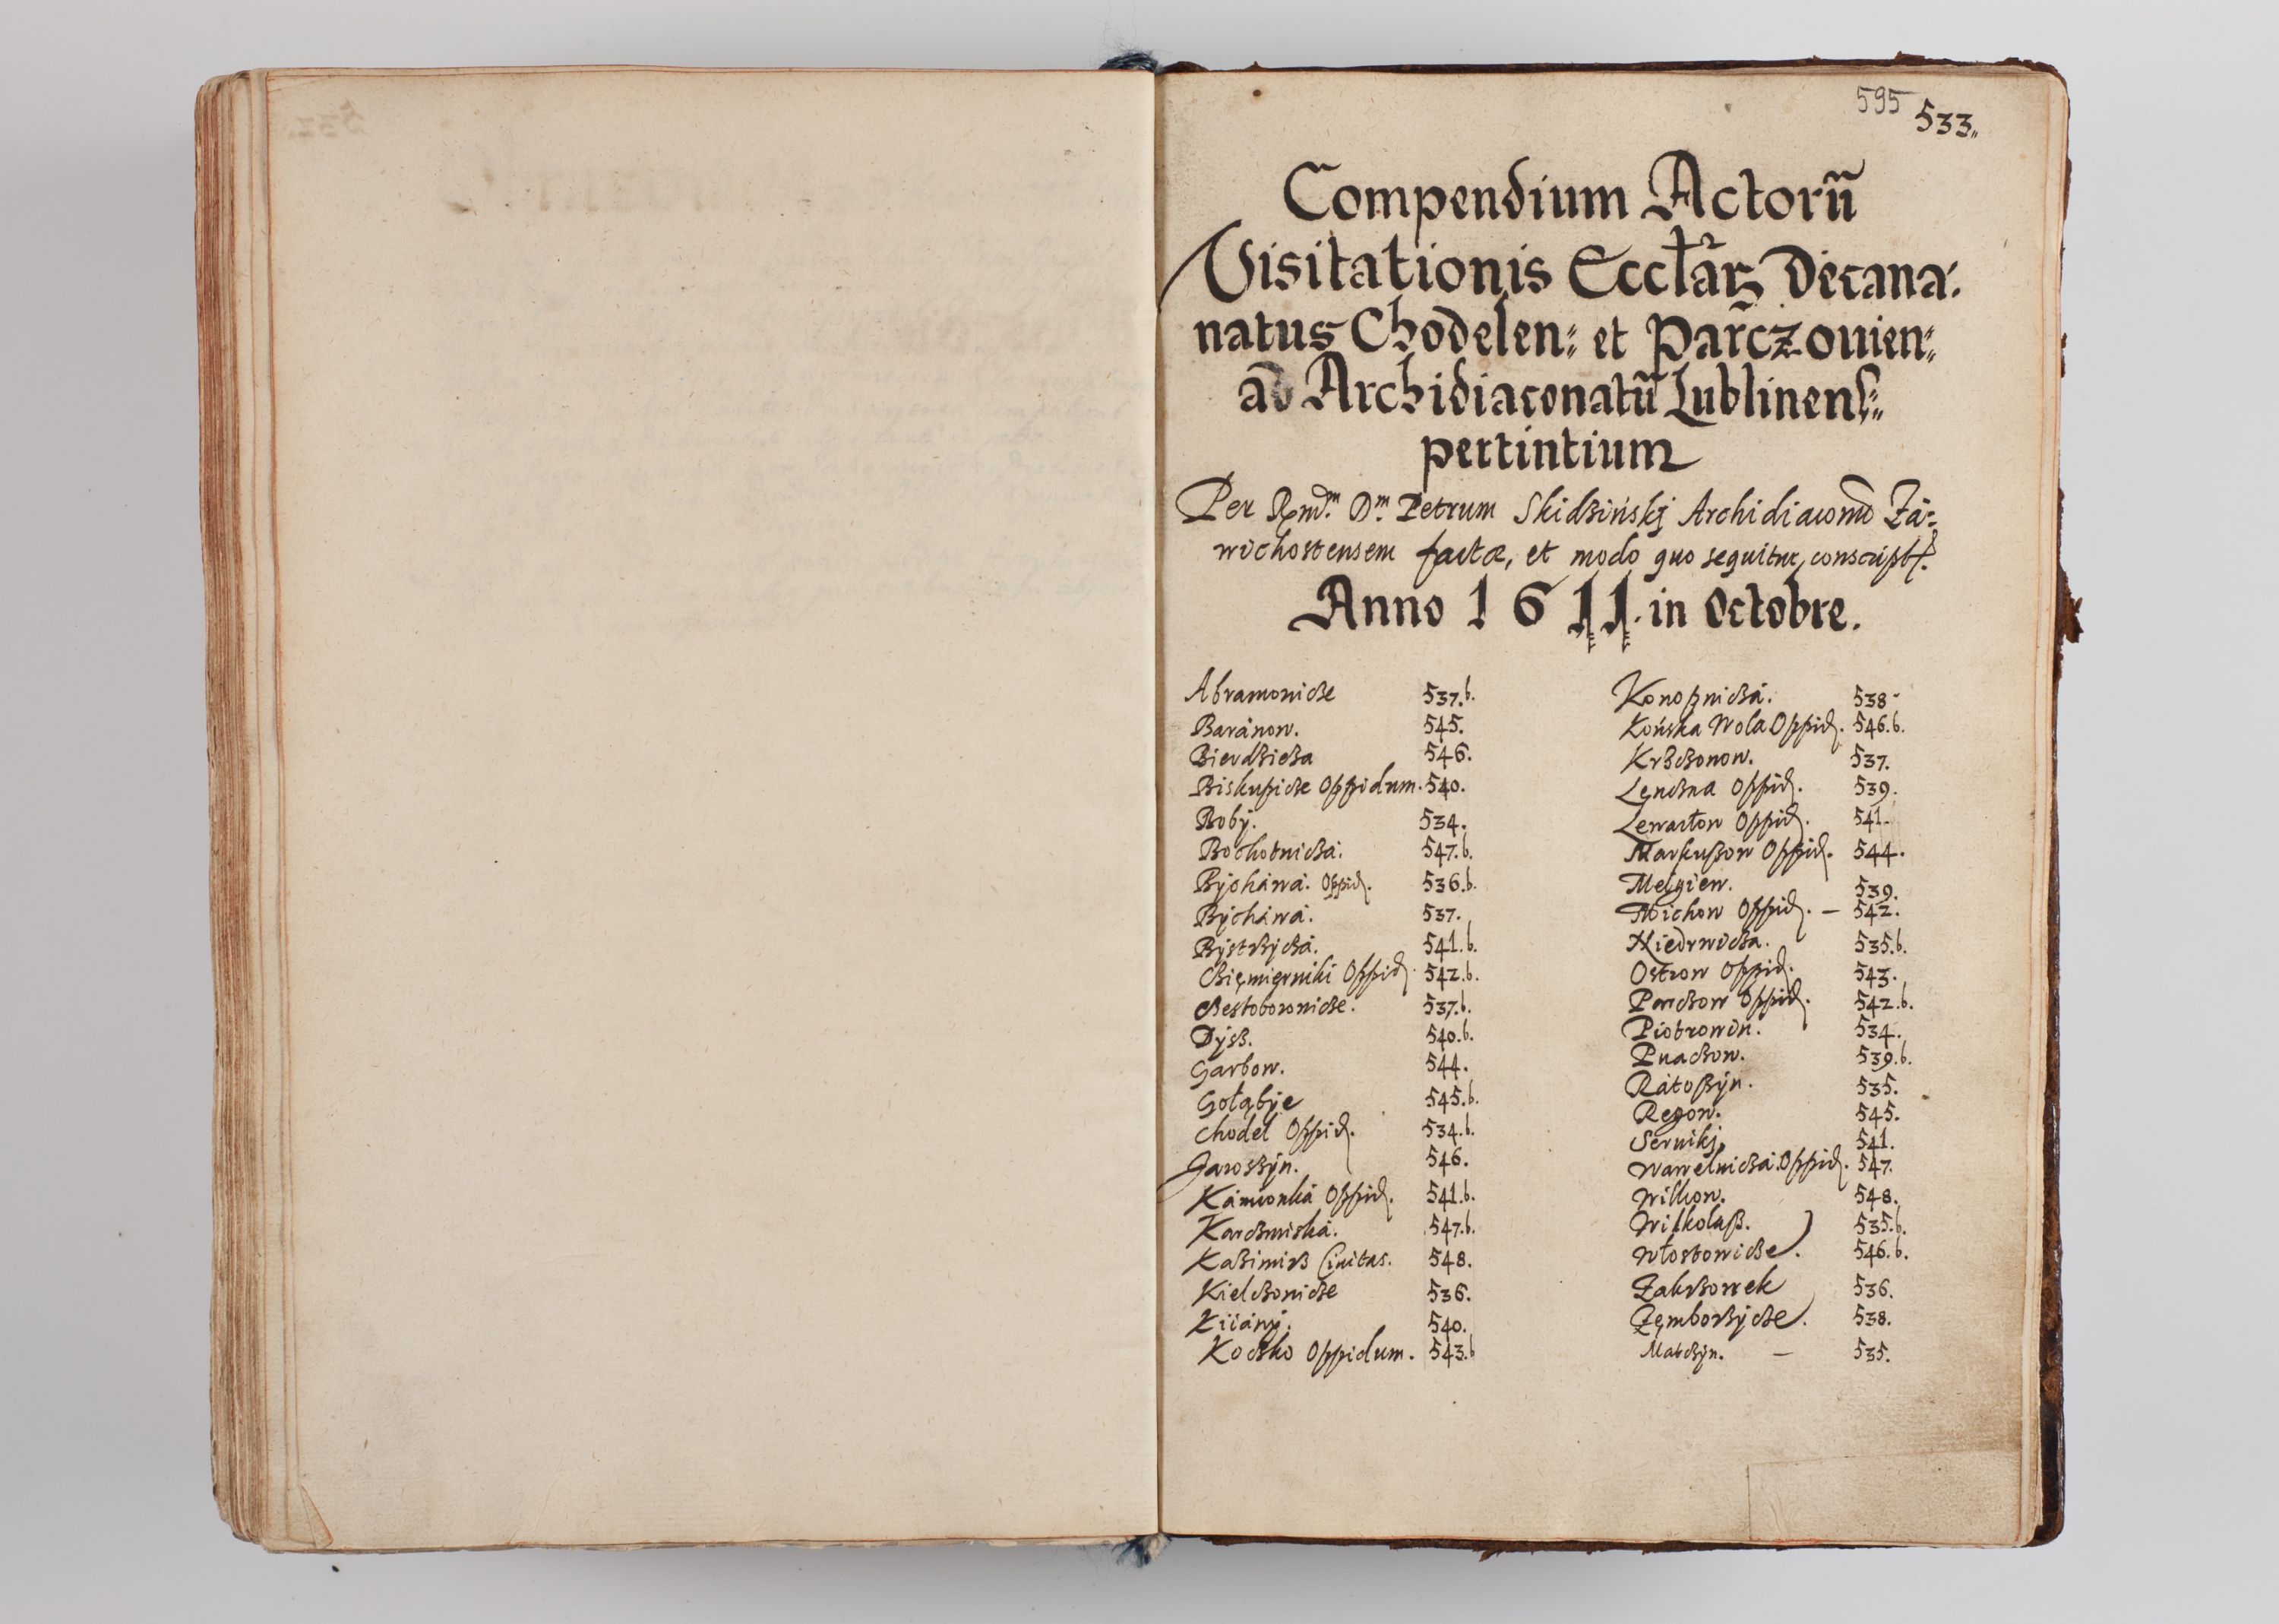 595 533.
Compendium Actorũ
Visitationis Eccłar̃ Decana:
natus Chodelen: et Parczouien:
ad Archidiaconatũ Lublinens:
pertintium
Per Rmd.ᵐ D.ᵐ Petrum Skidziński Archidiaconũ Zá:
wichostensem factæ, et modo quo sequitur, conscriptę.
Anno 1611. in Octobre.
Abramowicze 537.b.
Baránow. 545.
Bierdzieza 546.
Biskupicze Oppidum. 540.
Boby. 534.
Bochotniczá. 547.b.
Bycháwá. Oppid. 536.b.
Bycháwá. 537.
Bystrzyczá. 541.b.
Czięmięrniki Oppid. 542.b.
Czestoborowicze. 537.b.
Dysz. 540.b.
Garbow. 544.
Gołąbye 545.b.
Chodel Oppid. 534.b.
Jaroszyn. 546.
Kámionká Oppid. 541.b.
Karczmiská. 547.b.
Kazimirz Ciuitas. 548.
Kielczowicze 536.
Kiiány. 540.
Koczko Oppidum. 543.b
Konopniczá. 538.
Końska Wola Oppid. 546.b.
Krzczonow. 537.
Lęnczna Oppid. 539.
Lewartow Oppid. 541.
Markuszow Oppid. 544.
Mełgiew. 539.
Michow Oppid. – 542.
Niedrwicza. 535.b.
Ostrow Oppid. 543.
Parczow Oppid. 542.b.
Piotrowin. 534.
Puaczow. 539.b.
Rátoszyn. 535.
Regow. 545.
Serniki 541.
Wawelniczá Oppid. 547.
Wilkow. 548.
Wilkolasz. 535.b.
Włostowicze. 546.b.
Zakrzowek 536.
Zęmborzycze. 538.
Matczyn. – 535.